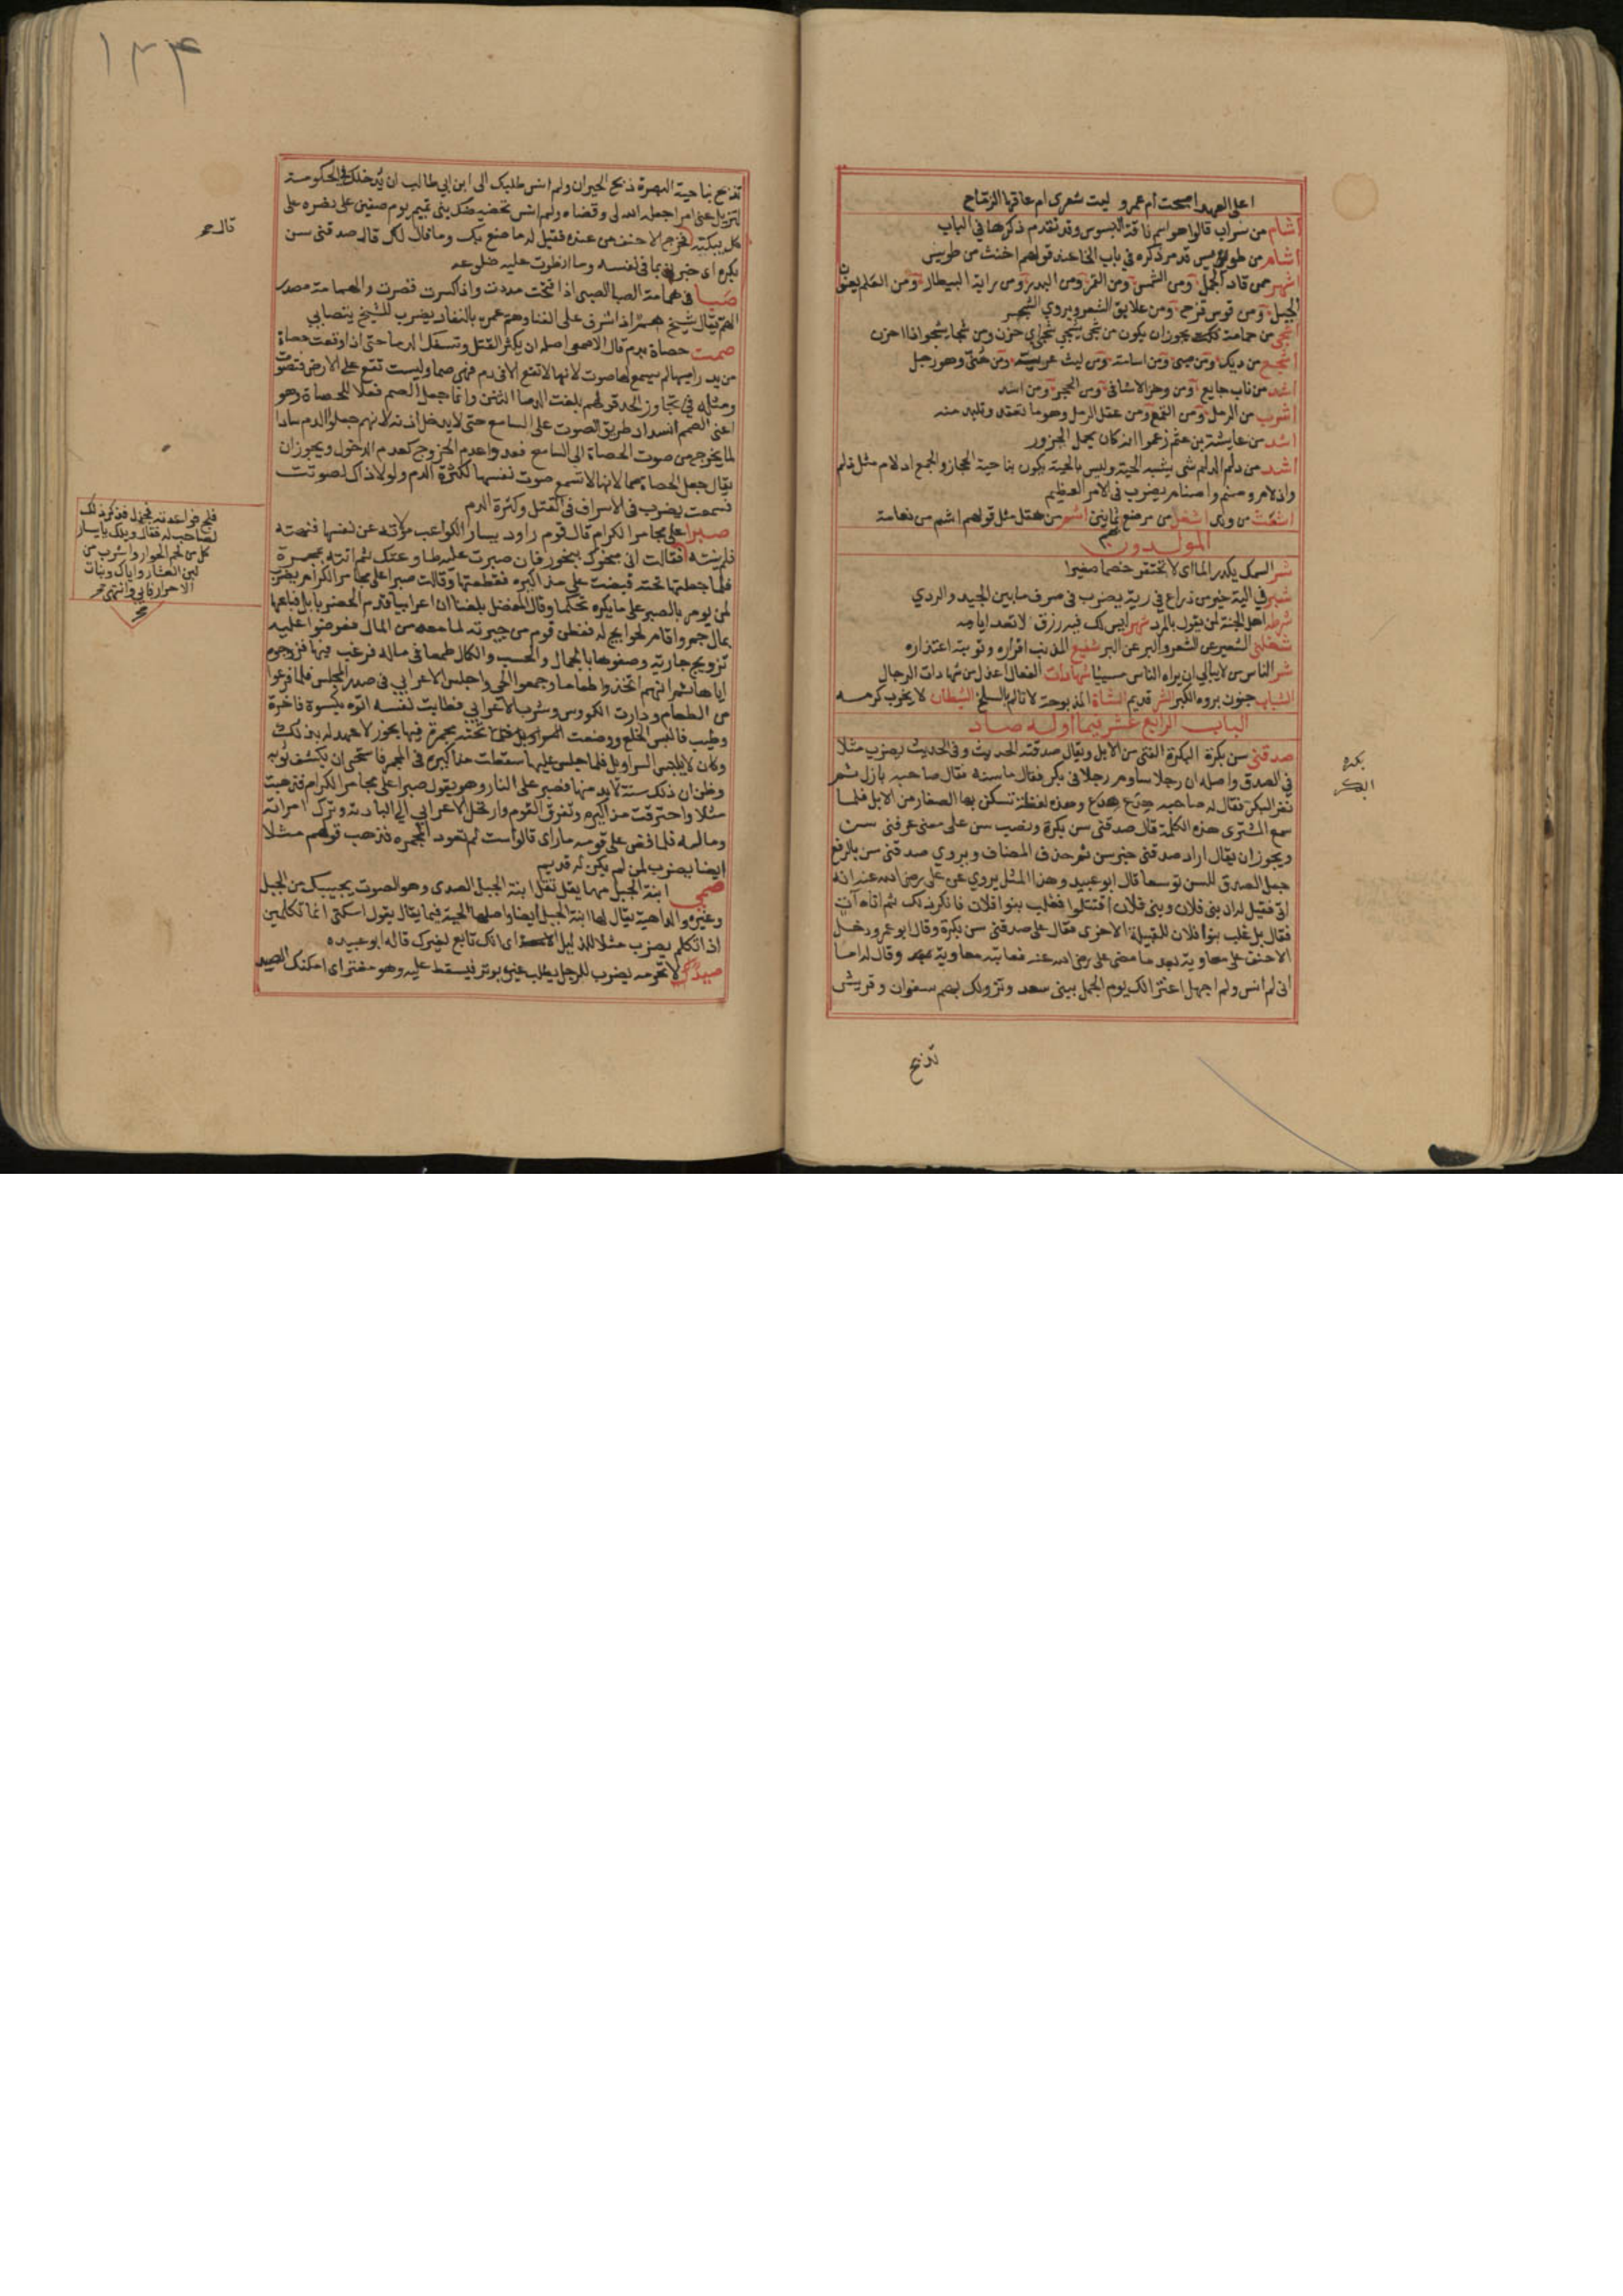 اعلى العهد اصبحت أم عمرو ليت شعرى ام عاقها الزماح
أشام من سراب قالوا هو اسم ناقة البسوس وقد تقدم ذكرها في الباب
أشام من طويس قد مر ذكره في باب الخا عند قولهم اخنث من طويس
اشهر من قاد الجمل ومن الشمس ومن القمر ومن البدر ومن راية البيطار ومن العلم يعنون
الجبل ومن قوس قزح ومن علايق الشعر ويروي الشجر
اشجى من حمامة يجوز ان يكون من شجى يشجي شجى اي حزن ومن شجا يشجو اذا احزن
اشجع من ديك ومن صبي ومن اسامة ومن ليث عريسة ومن هنى وهو رجل
اشد من ناب جايع ومن وخز الاشافى ومن الحجر ومن اسد
اشرب من الرمل ومن القمع ومن عقد الرمل وهو ما تعقد وتلبد منه
اشد من عايشة بن عثم زعموا انه كان يحمل الجزور
اشد من دلم الدلم شى يشبه الحية وليس بالحية يكون بناحية الحجاز والجمع ادلام مثل زلم
وازلام وصنم واصنام يضرب فى الامر العظيم
اشعث من وتد اشغل من مرضع بهم ثمانين اشم من هقل مثل قولهم اشم من نعامة
المولدون
شر السمك يكدر الما اى لا تحتقر خصما صغيرا
شبر في الية خير من ذراع في رية يضرب فى صرف ما بين الجيد والردي
شرط اهل الجنة لمن يقول بالمرد شهر ليس لك فيه رزق لا تعد ايامه
شغلني الشعير عن الشعر والبر عن البر شفيع المذنب اقراره وتوبته اعتذاره
شر الناس من لا يبالي ان يراه الناس مسييا شهادات الفعال اعدل من شهادات الرجال
الشباب جنون بروه الكبر الشر قديم الشاة المذبوحة لا تالم بالسلخ الشيطان لا يخرب كرمه
الباب الرابع عشر فيما اوله صاد
صدقني سن بكرة البكرة الفتى من الابل ويقال صدقته الحديث وفي الحديث يضرب مثلا
فى الصدق واصله ان رجلا ساوم رجلا فى بكر فقال ما سنه فقال صاحبه بازل ثم
نفر البكر فقال له صاحبه هدع هدع وهذه لفظة تسكن بها الصغار من الابل فلما
سمع المشترى هذه الكلمة قال صدقنى سن بكرة ونصب سن على معنى عرفنى سن
ويجوز ان يقال اراد صدقنى خبر سن ثم حذف المضاف ويروي صدقنى سن بالرفع
جعل الصدق للسن توسعا قال ابو عبيد وهذا المثل يروي عن على رضى الله عنه انه
اتى فقيل له ان بنى فلان وبنى فلان اقتتلوا فغلب بنوا فلان فانكر ذلك ثم اتاه آت
فقال بل غلب بنوا فلان للقبيلة الاخرى فقال على صدقنى سن بكرة وقال ابو عمرو دخل
الاحنف على معاوية بعد ما مضى على رضى الله عنه فعاتبه معاوية وقال له اما
انى لم انس ولم اجهل اعتزالك يوم الجمل ببنى سعد ونزولك بهم سفوان وقريش
تذبح
بكره
البكر
١٣٤
تذبح بناحية البصرة ذبح الحيران ولم انس طلبك الى ابن ابي طالب ان يدخلك فى الحكومة
لتزيل عنى امرا جعله الله لى وقضاه ولم انس تحضيضك بنى تميم يوم صفين على نصره على
كل يبكته فخرج الاحنف من عنده فقيل له ما صنع بك وما قال لك قال صدقنى سن
بكره اى خبرنى بما فى نفسه وما انطوت عليه ضلوعه
صبا فى همامة الصبا الصبى اذا فتحت مددت واذا كسرت قصرت والهمامة مصدر
الهم يقال شيخ هم اذا اشرف على الفنا وهم عمره بالنفاد يضرب للشيخ يتصابي
صمت حصاة بدم قال الاصمعى اصله ان يكثر القتل وتسفك الدما حتى اذا وقعت حصاة
من يد راميها لم يسمع لها صوت لانها لا تقع الا فى دم فهى صما وليست تقع على الارض فتصوت
ومثله في تجاوز الحد قولهم بلغت الدما الثنن وانما جعل الصمم فعلا للحصاة وهو
اعنى الصمم انسداد طريق الصوت على السامع حتى لا يدخل اذنه لانهم جعلوا الدم سادا
لما يخرج من صوت الحصاة الى السامع فعد واعدم الخروج كعدم الدخول ويجوز ان
يقال جعل الحصاة صما لانها لا تسمع صوت نفسها لكثرة الدم ولولا ذاك لصوتت
فسمعت يضرب فى الاسراف فى القتل وكثرة الدم
صبرا على مجامر الكرام قال قوم راود يسار الكواعب مولاته عن نفسها فنهته
فلم ينته فقالت انى مبخرك ببخور فان صبرت عليه طاوعتك ثم اتته بمجمرة
فلما جعلتها تحته قبضت على مذاكيره فقطعتها وقالت صبرا على مجامر الكرام يضرب
لمن يومر بالصبر على ما يكره تهكما وقال المفضل بلغنا ان اعرابيا قدم الحضر بابل فباعها
بمال جم واقام لحوايج له ففطن قوم من جيرته لما معه من المال فعرضوا عليه
تزويج جارية وصفوها بالجمال والحسب والكمال طمعا فى ماله فرغب فيها فزوجوه
اياها ثم انهم اتخذوا طعاما وجمعوا الحي واجلس الاعرابي فى صدر المجلس فلما فرغوا
من الطعام ودارت الكووس وشرب الاعرابي فطابت نفسه اتوه بكسوة فاخرة
وطيب فالبس الخلع ووضعت تحته مجمرة فيها بخور لا عهد له بذلك
وكان لا يلبس السراويل فلما جلس عليها سقطت مذاكيره فى المجمر فاستحيى ان يكشف ثوبه
وظن ان ذلك سنة لا بد منها فصبر على النار وهو يقول صبرا على مجامر الكرام فذهبت
مثلا واحترقت مذاكيره وتفرق القوم وارتحل الاعرابي الى البادية وترك امراته
وماله فلما قص على قومه ما راى قالوا است لم تعود المجمره فذهب قولهم مثلا
ايضا يضرب لمن لم يكن له قديم
صمي ابنة الجبل مهما يقل تقل ابنة الجبل الصدى وهو الصوت يجيبك من الجبل
وغيره والداهية يقال لها ابنة الجبل ايضا واصلها الحية فيما يقال يقول اسكتى انما تكلمين
اذا تكلم يضرب مثلا للذليل الامعة اى انك تابع لغيرك قاله ابو عبيده
صيدك لا تحرمه يضرب للرجل يطلب غيره بوتر فيسقط عليه وهو مغتر اى امكنك الصيد
قال حمر
فلج فواعدته فجهل فذكر ذلك
لصاحب له فقال ويلك يا يسار
كل من لحم الحوار واشرب من
لبن العشار واياك وبنات
الاحرار فابي وانتهى